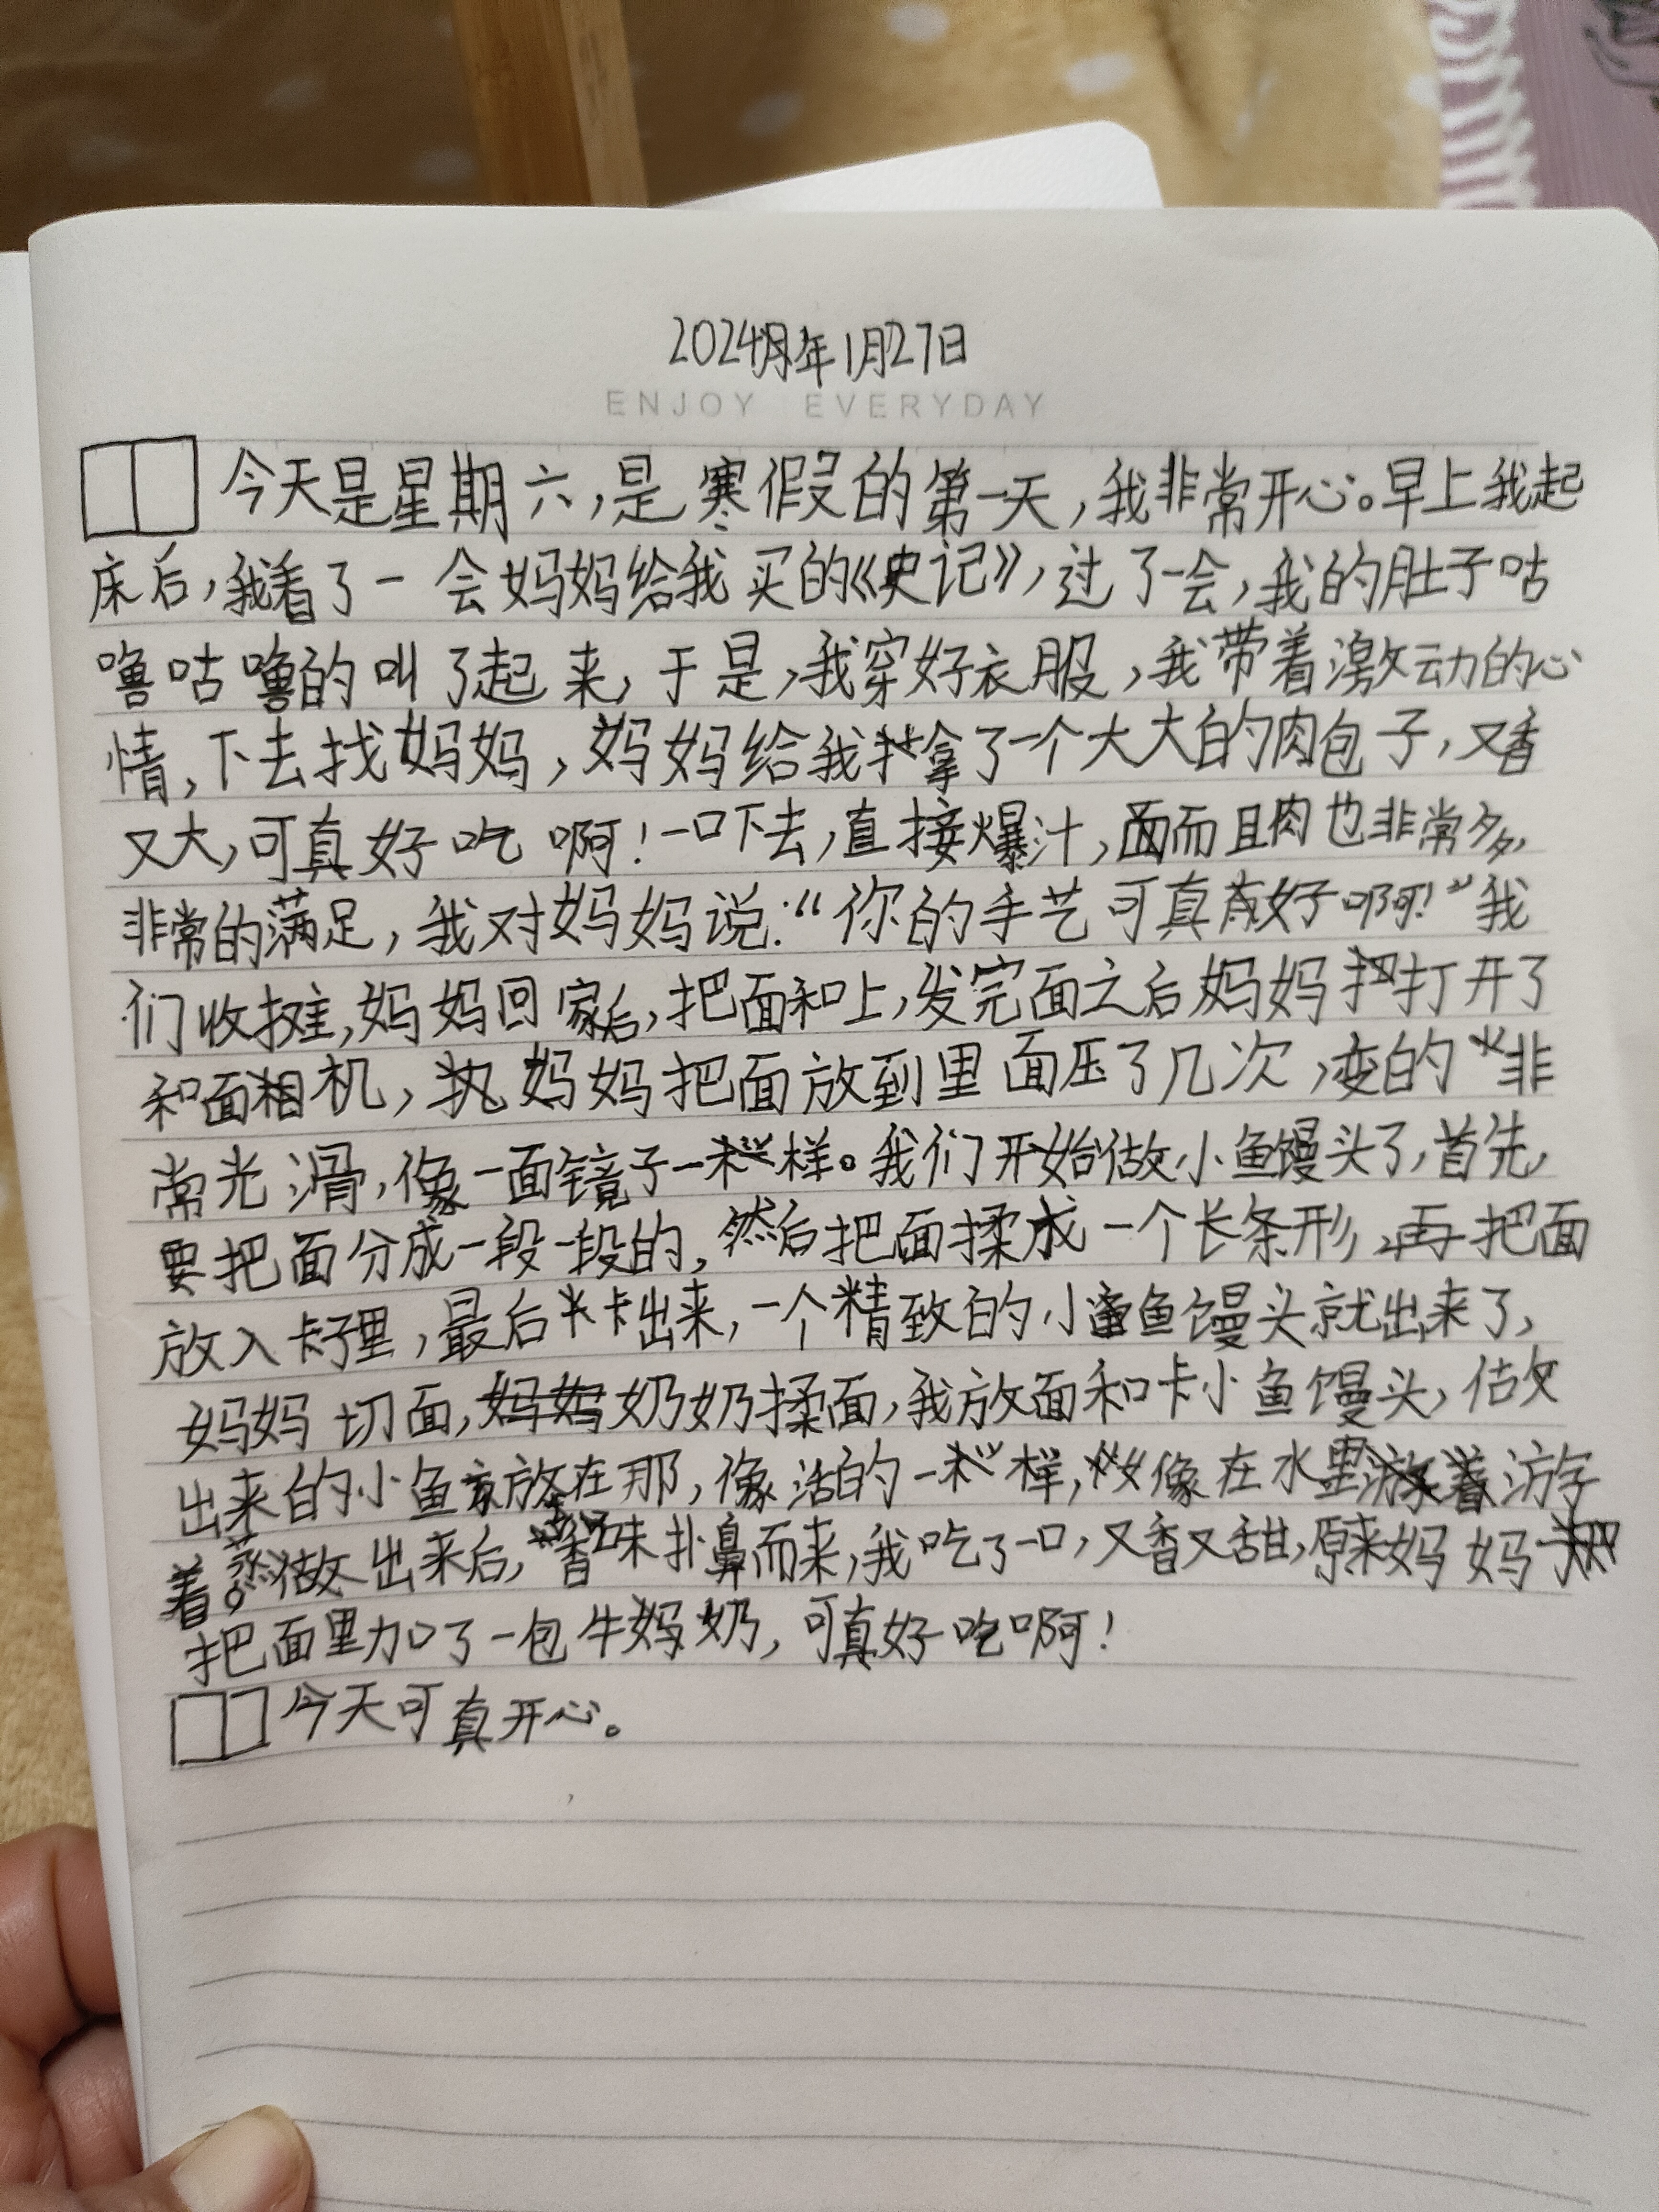 2024年1月27日
ENJOY EVERYDAY
今天是星期六,是寒假的第一天,我非常开心。早上我起
床后,我看了一会妈妈给我买的《史记》,过了一会,我的肚子咕
噜咕噜的叫了起来,于是,我穿好衣服,我带着激动的心
情,下去找妈妈,妈妈给我拿了一个大大的肉包子,又香
又大,可真好吃啊!一口下去,直接爆汁,而且肉也非常多,
非常的满足,我对妈妈说:“你的手艺可真好啊!”我
们收摊,妈妈回家后,把面和上,发完面之后妈妈打开了
和面机,妈妈把面放到里面压了几次,变的非
常光滑,像一面镜子一样。我们开始做小鱼馒头了,首先,
要把面分成一段一段的,然后把面揉成一个长条形,再把面
放入卡子里,最后卡出来,一个精致的小鱼馒头就出来了,
妈妈切面,奶奶揉面,我放面和卡小鱼馒头,做
出来的小鱼放在那,像活的一样,像在水里游
着。蒸出来后,香味扑鼻而来,我吃了一口,又香又甜,原来妈妈
把面里加了一包牛奶,可真好吃啊!
今天可真开心。